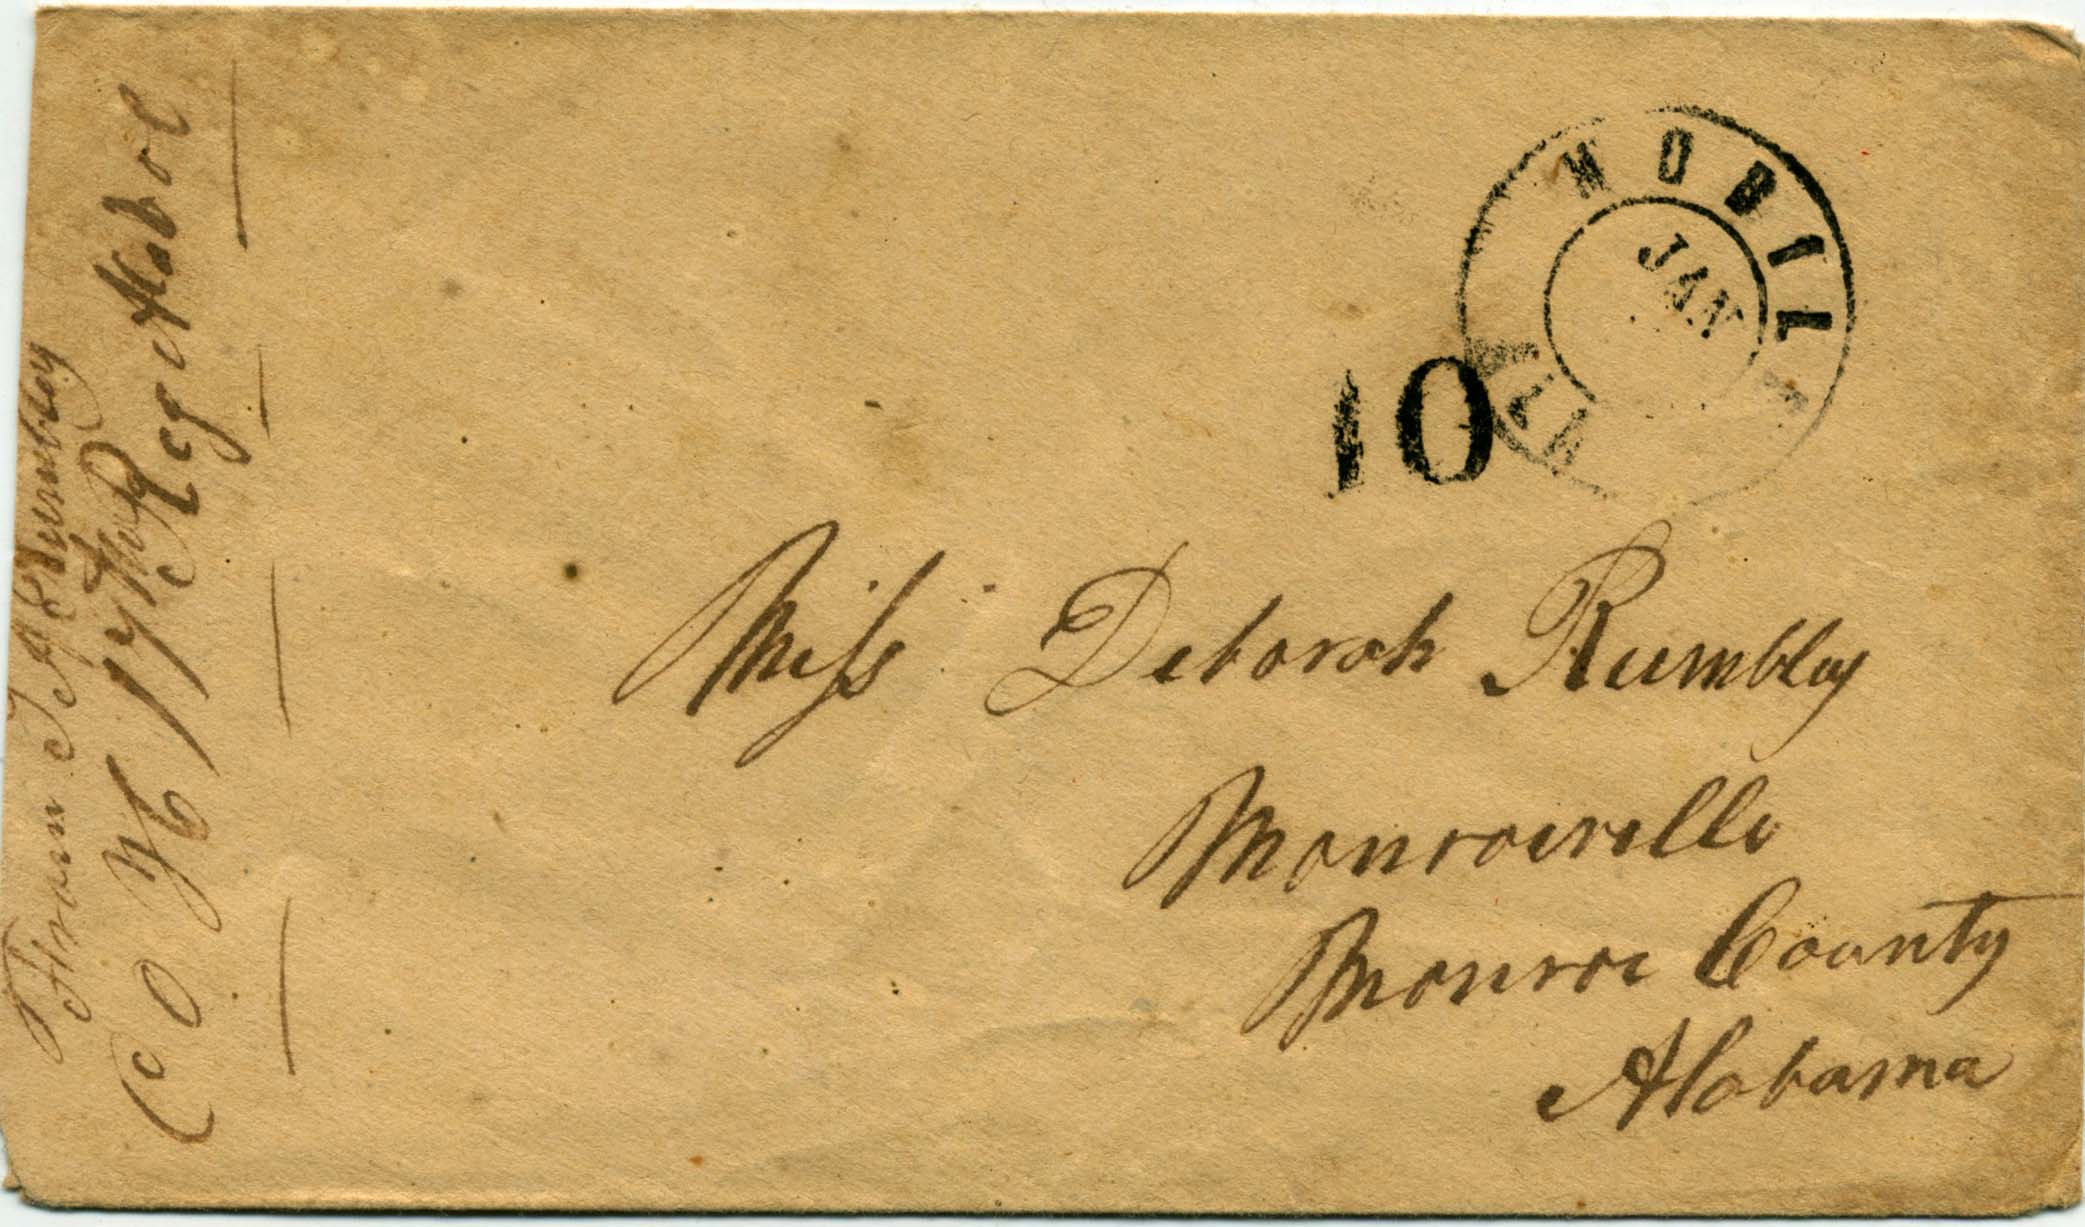 MOBILE
ALA
JAN
10
Miss Deborah Rumbley
Monroeville
Monroe County
Alabama
From T A Rumbley
Co H 17th Regt Ala vol